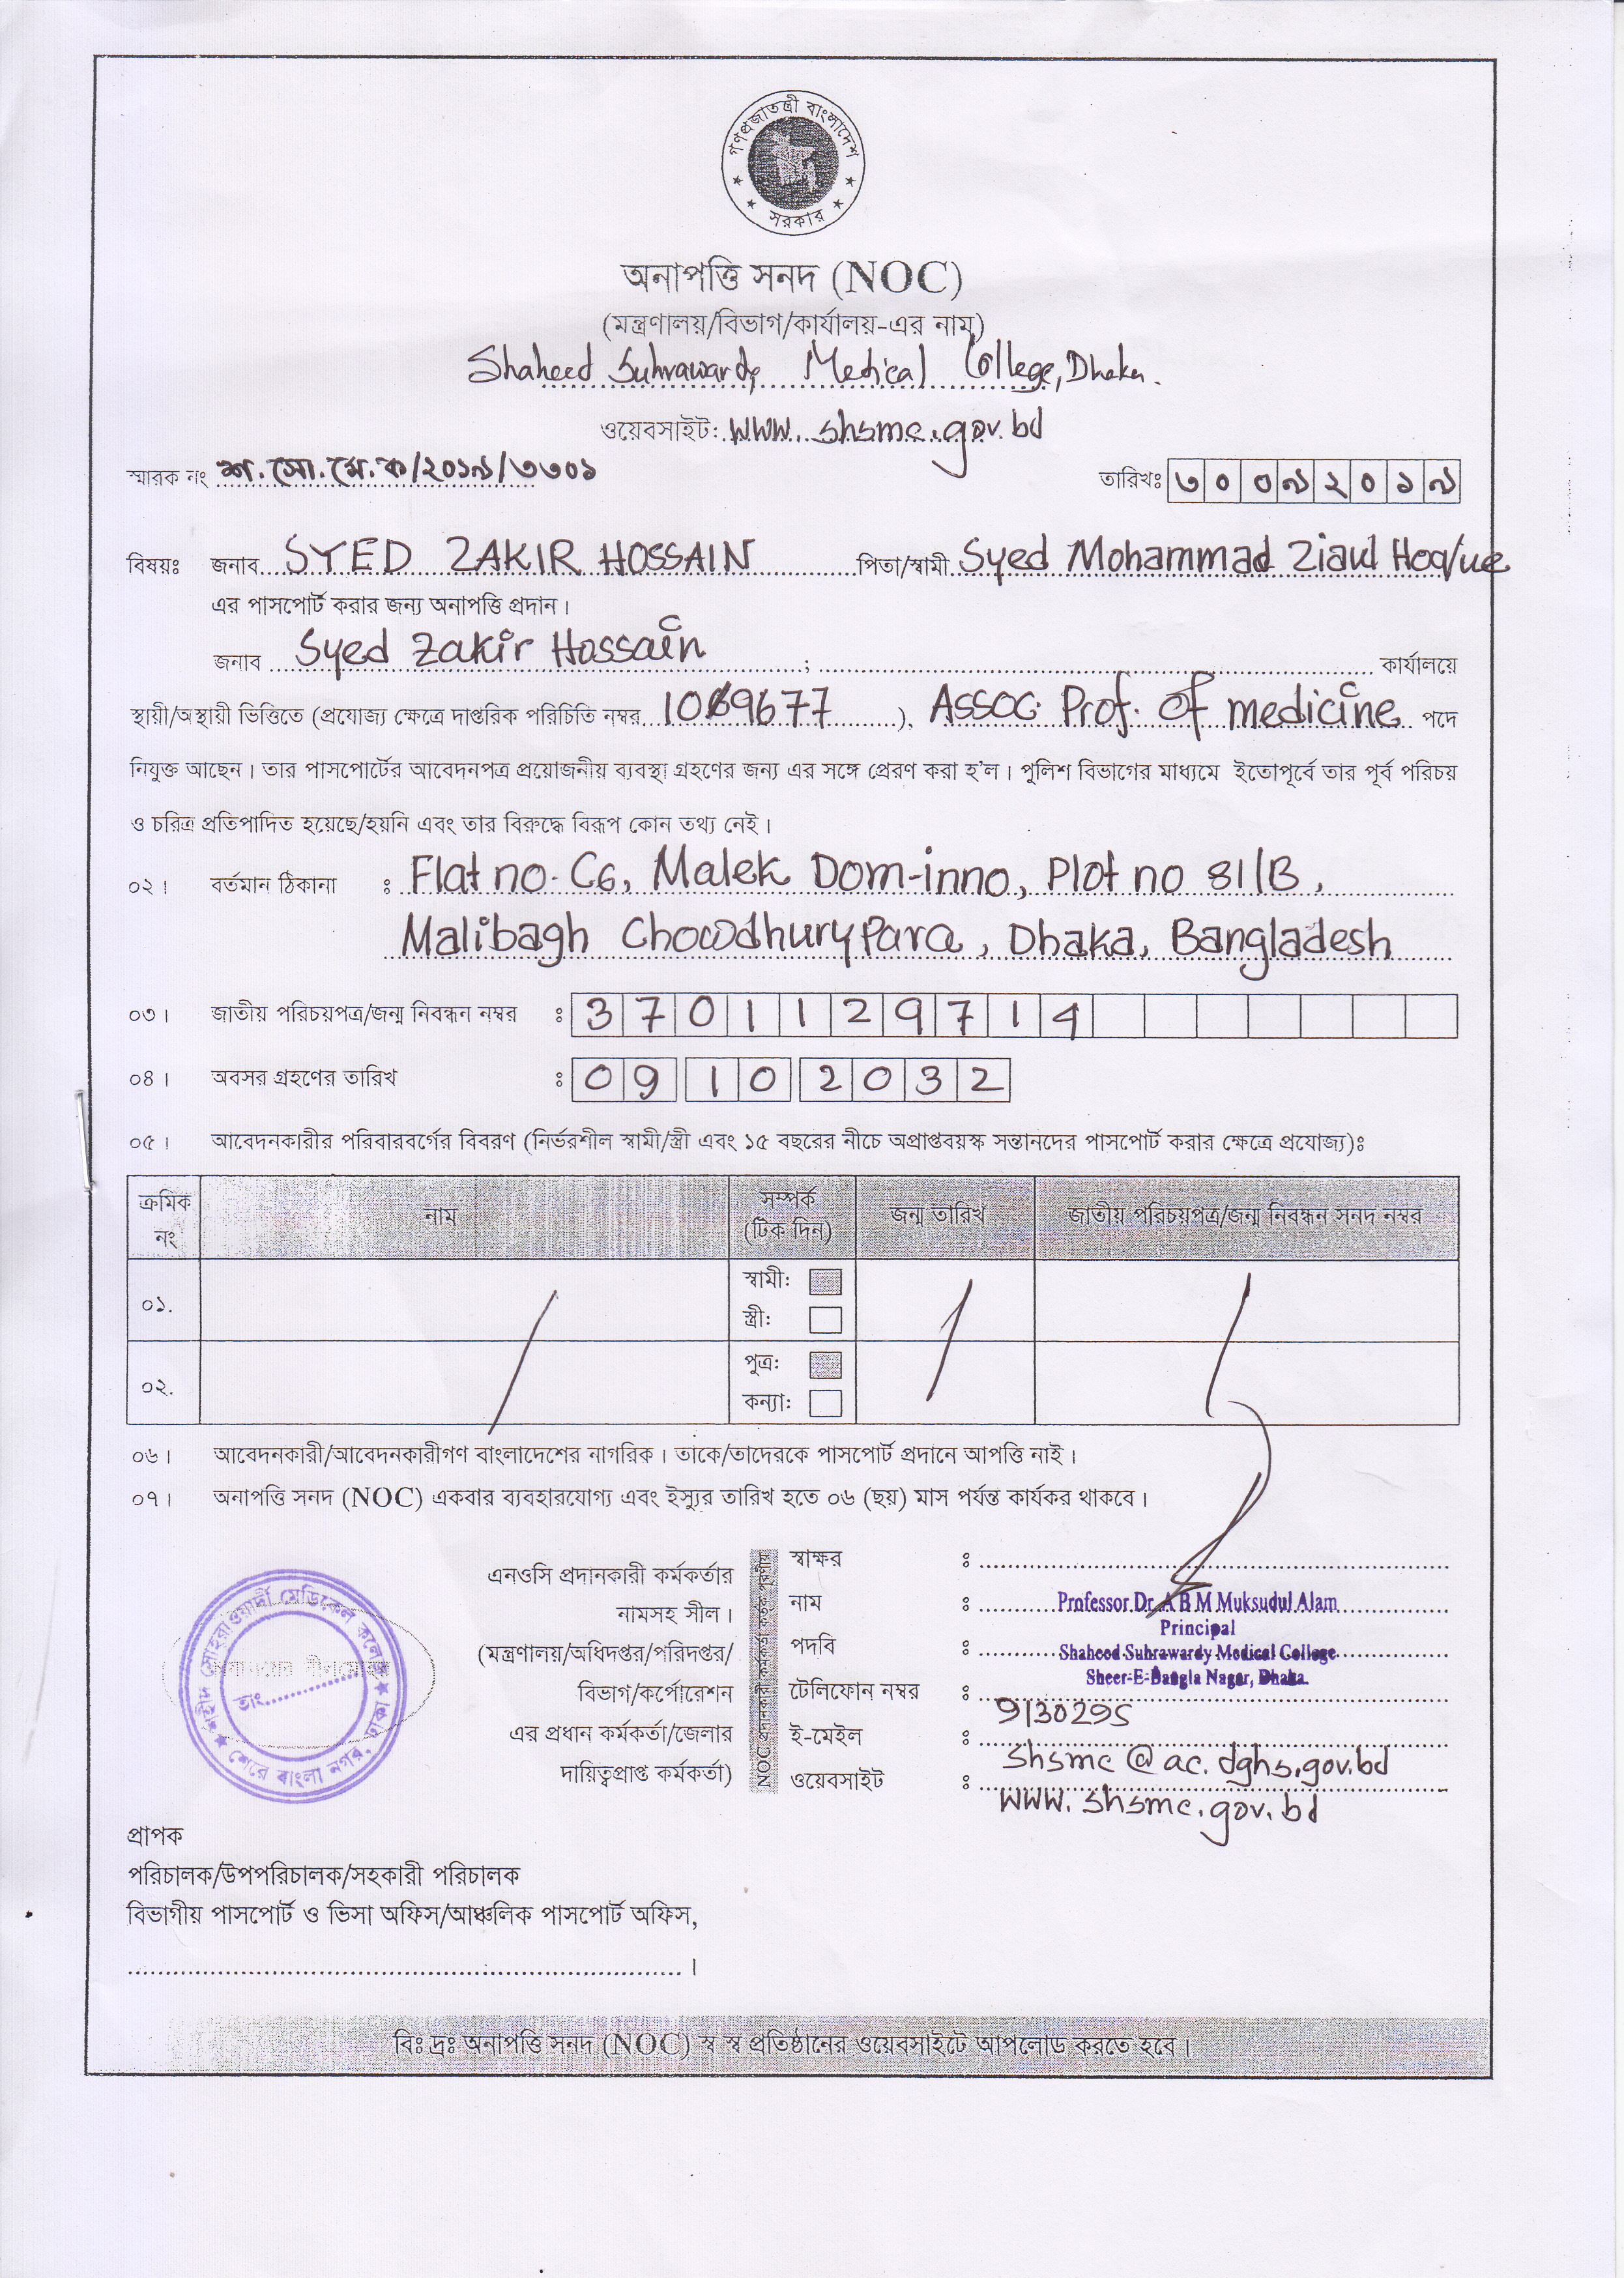 গণপ্রজাতন্ত্রী বাংলাদেশ
সরকার
অনাপত্তি সনদ (NOC)
(মন্ত্রণালয়/বিভাগ/কার্যালয়-এর নাম)
Shaheed Suhrawardy Medical College, Dhaka.
ওয়েবসাইট: www.shsmc.gov.bd
স্মারক নং শ.সো.মে.ক/২০১৯/৩৩০১ তারিখঃ ৩০০৯২০১৯
বিষয়ঃ জনাব SYED ZAKIR HOSSAIN পিতা/স্বামী Syed Mohammad Ziaul Hoque
এর পাসপোর্ট করার জন্য অনাপত্তি প্রদান।
জনাব Syed Zakir Hossain ; কার্যালয়ে
স্থায়ী/অস্থায়ী ভিত্তিতে (প্রযোজ্য ক্ষেত্রে দাপ্তরিক পরিচিতি নম্বর ), Assoc. Prof. of medicine পদে
নিযুক্ত আছেন। তার পাসপোর্টের আবেদনপত্র প্রয়োজনীয় ব্যবস্থা গ্রহণের জন্য এর সঙ্গে প্রেরণ করা হ'ল। পুলিশ বিভাগের মাধ্যমে ইতোপূর্বে তার পূর্ব পরিচয়
ও চরিত্র প্রতিপাদিত হয়েছে/হয়নি এবং তার বিরুদ্ধে বিরূপ কোন তথ্য নেই।
০২। বর্তমান ঠিকানা : Flat no. C6, Malek Dom-inno, Plot no 81/B,
Malibagh Chowdhurypara, Dhaka, Bangladesh
০৩। জাতীয় পরিচয়পত্র/জন্ম নিবন্ধন নম্বর : 3701129714
০৪। অবসর গ্রহণের তারিখ : 09 10 2032
০৫। আবেদনকারীর পরিবারবর্গের বিবরণ (নির্ভরশীল স্বামী/স্ত্রী এবং ১৫ বছরের নীচে অপ্রাপ্তবয়স্ক সন্তানদের পাসপোর্ট করার ক্ষেত্রে প্রযোজ্য)ঃ
ক্রমিক নং নাম সম্পর্ক (টিক দিন) জন্ম তারিখ জাতীয় পরিচয়পত্র/জন্ম নিবন্ধন সনদ নম্বর
০১. স্বামী:
স্ত্রী:
০২. পুত্র:
কন্যা:
০৬। আবেদনকারী/আবেদনকারীগণ বাংলাদেশের নাগরিক। তাকে/তাদেরকে পাসপোর্ট প্রদানে আপত্তি নাই।
০৭। অনাপত্তি সনদ (NOC) একবার ব্যবহারযোগ্য এবং ইস্যুর তারিখ হতে ০৬ (ছয়) মাস পর্যন্ত কার্যকর থাকবে।
শহীদ সোহরাওয়ার্দী মেডিকেল কলেজ
তাং
শেরে বাংলা নগর, ঢাকা
এনওসি প্রদানকারী কর্মকর্তার
নামসহ সীল।
(মন্ত্রণালয়/অধিদপ্তর/পরিদপ্তর/
বিভাগ/কর্পোরেশন
এর প্রধান কর্মকর্তা/জেলার
দায়িত্বপ্রাপ্ত কর্মকর্তা)
NOC প্রদানকারী কর্মকর্তা কর্তৃক পূরণীয়
স্বাক্ষর :
নাম : Professor Dr. A B M Muksudul Alam
Principal
পদবি : Shaheed Suhrawardy Medical College
Sheer-E-Bangla Nagar, Dhaka.
টেলিফোন নম্বর : 9130295
ই-মেইল : shsmc@ac.dghs.gov.bd
ওয়েবসাইট : www.shsmc.gov.bd
প্রাপক
পরিচালক/উপপরিচালক/সহকারী পরিচালক
বিভাগীয় পাসপোর্ট ও ভিসা অফিস/আঞ্চলিক পাসপোর্ট অফিস,
।
বিঃ দ্রঃ অনাপত্তি সনদ (NOC) স্ব স্ব প্রতিষ্ঠানের ওয়েবসাইটে আপলোড করতে হবে।